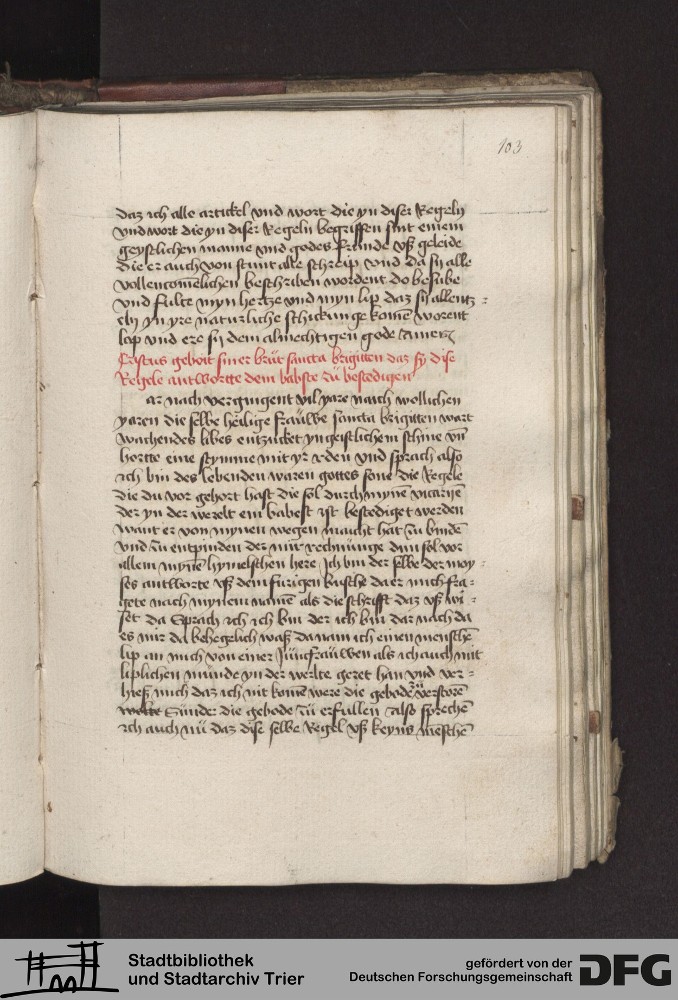 103
daz ich alle artickel vnd wort die yn diser Regeln
vnd wort die yn diser Regeln begriffen sint einem
geystlichen manne vnd godes frunde vß geleide
die er auch von stunt alle schreip vnd da sij alle
vollencomēlichen beschriben wordent do besube
vnd fulte myn hertze vnd myn lip daz sij allentz=
eln yn yre naturliche schickunge komē worent
lop vnd ere sij dem almechtigen gode Amen
Cristus gehoit siner brut sancta brigitten daz sy dise
Regele antwortte dem babste zü bestedigen
ar nach vergingent vil yare nach wollichen
yaren die selbe heilige frauwe sancta brigitten wart
wachendes libes entzucket yn geistlichem schine vn̄
hortte eine stymme mit yr reden vnd sprach also
ich bin des lebenden waren gottes sone die Regele
die du vor gehort hast die sol durch mynē vicarijē
der yn der werelt ein babest ist bestediget werden
want er von mynen wegen macht hat zü bindē
vnd zü entpinden der mir rechnunge dun sol vor
allem mynē hymelschen here Ich bin der selbe der moy=
ses antworte vß dem furigen busche da er mich fra=
gete nach mynem namē als die schrifft daz vß wi=
set da sprach ich ich bin der ich bin dar nach da
es mir da behegelich waß da nam ich einen menschē
lip an mich von einer Jungfrauwen als ich auch mit
liplichen munde yn der werlte geret han vnd ver=
hieß mich daz ich nit komē were die gebode zü verstorē
Sünder die gebode zü erfullen Also sprechē
ich auch nü daz dise selbe Regel vß keyns menschē
Stadtbibliothek
und Stadtarchiv Trier
gefördert von der
Deutschen Forschungsgemeinschaft
DFG